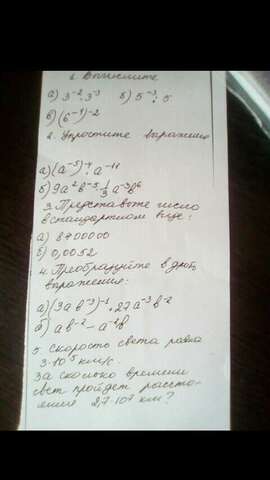 1. Вычислите
а) 3⁻² : 3⁻³ б) 5⁻³ : 5
в) (6⁻¹)⁻²
2. Упростите выражение
а) (a⁻⁵)⁻⁴ : a⁻¹¹
б) 9a²b⁻⁵ · 1/3 a⁻³b⁶
3. Представьте число
в стандартном виде:
а) 8700000
б) 0,0052
4. Преобразуйте в дробь
выражения:
а) (3ab⁻³)⁻¹ · 27a⁻³b⁻²
б) ab⁻² - a⁻²b
5. Скорость света равна
3·10⁵ км/с.
За сколько времени
свет пройдет расстоя-
ние 2,7·10⁷ км?